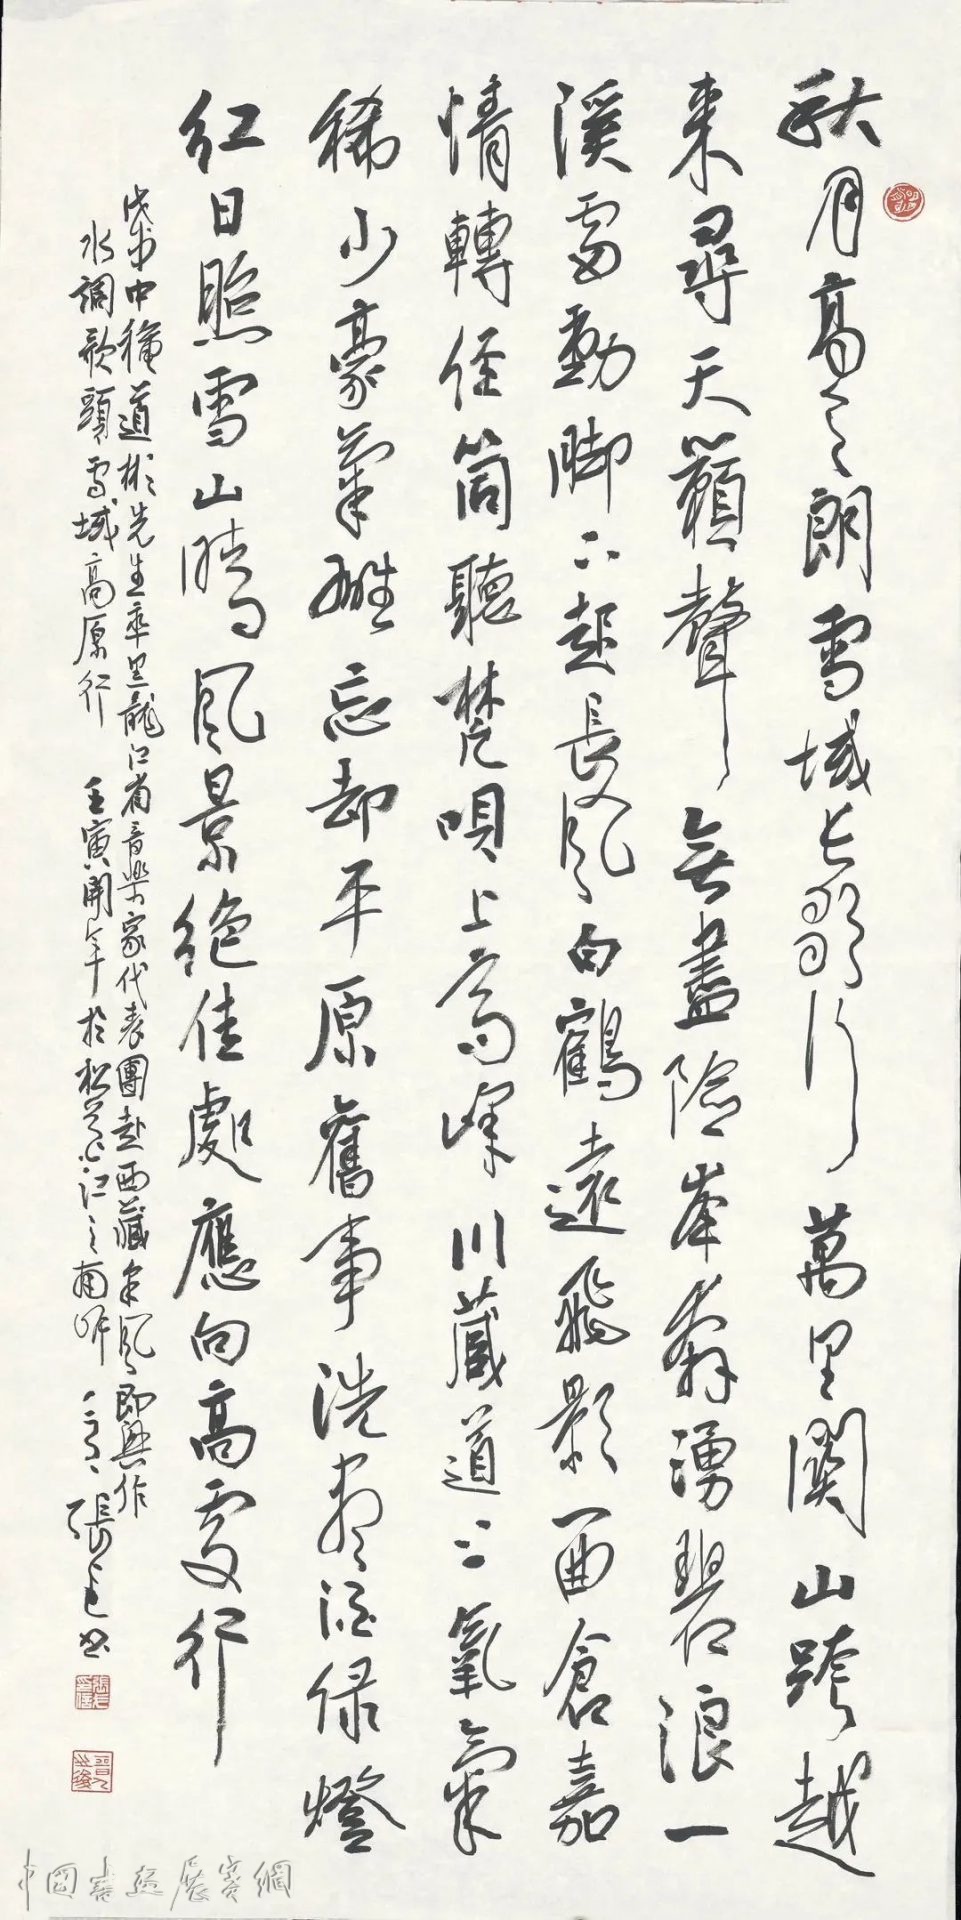 秋月高高朗雪域長歌行萬里關山跨越
來尋天籟聲無盡險峯奔湧碧浪一
溪雷動脚下起長風白鶴遠飛影一曲倉嘉
情轉經筒聽梵唄上高峰川藏道上氧氣
稀少豪氣雄忘却平原舊事洗盡酒綠燈
紅日照雪山晴風景絕佳處應向高處行
戊戌中秋道彬先生率黑龍江省音樂家代表團赴西藏采風即興作
水調歌頭雪域高原行 壬寅開年於松花江之南岸 張 書
中國書畫展賽網